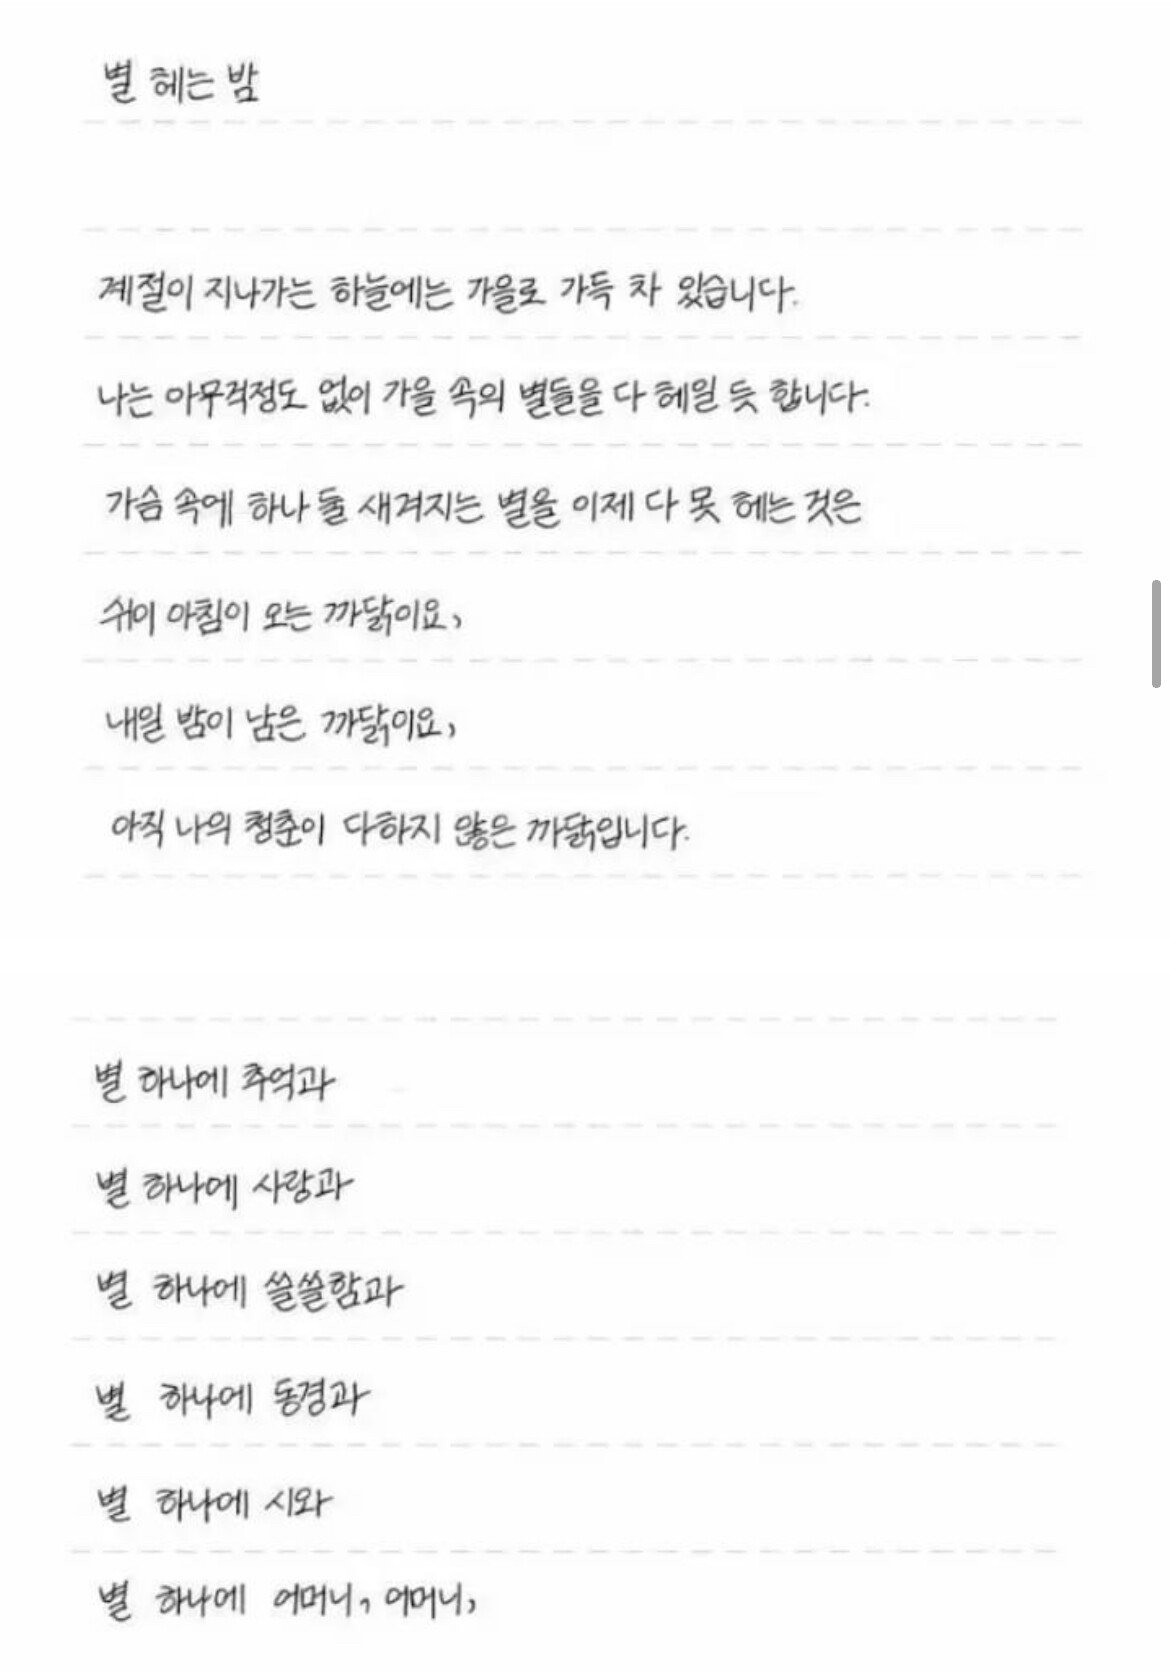 별 헤는 밤
계절이 지나가는 하늘에는 가을로 가득 차 있습니다.
나는 아무걱정도 없이 가을 속의 별들을 다 헤일 듯 합니다.
가슴 속에 하나 둘 새겨지는 별을 이제 다 못 헤는 것은
쉬이 아침이 오는 까닭이요,
내일 밤이 남은 까닭이요,
아직 나의 청춘이 다하지 않은 까닭입니다.
별 하나에 추억과
별 하나에 사랑과
별 하나에 쓸쓸함과
별 하나에 동경과
별 하나에 시와
별 하나에 어머니, 어머니,